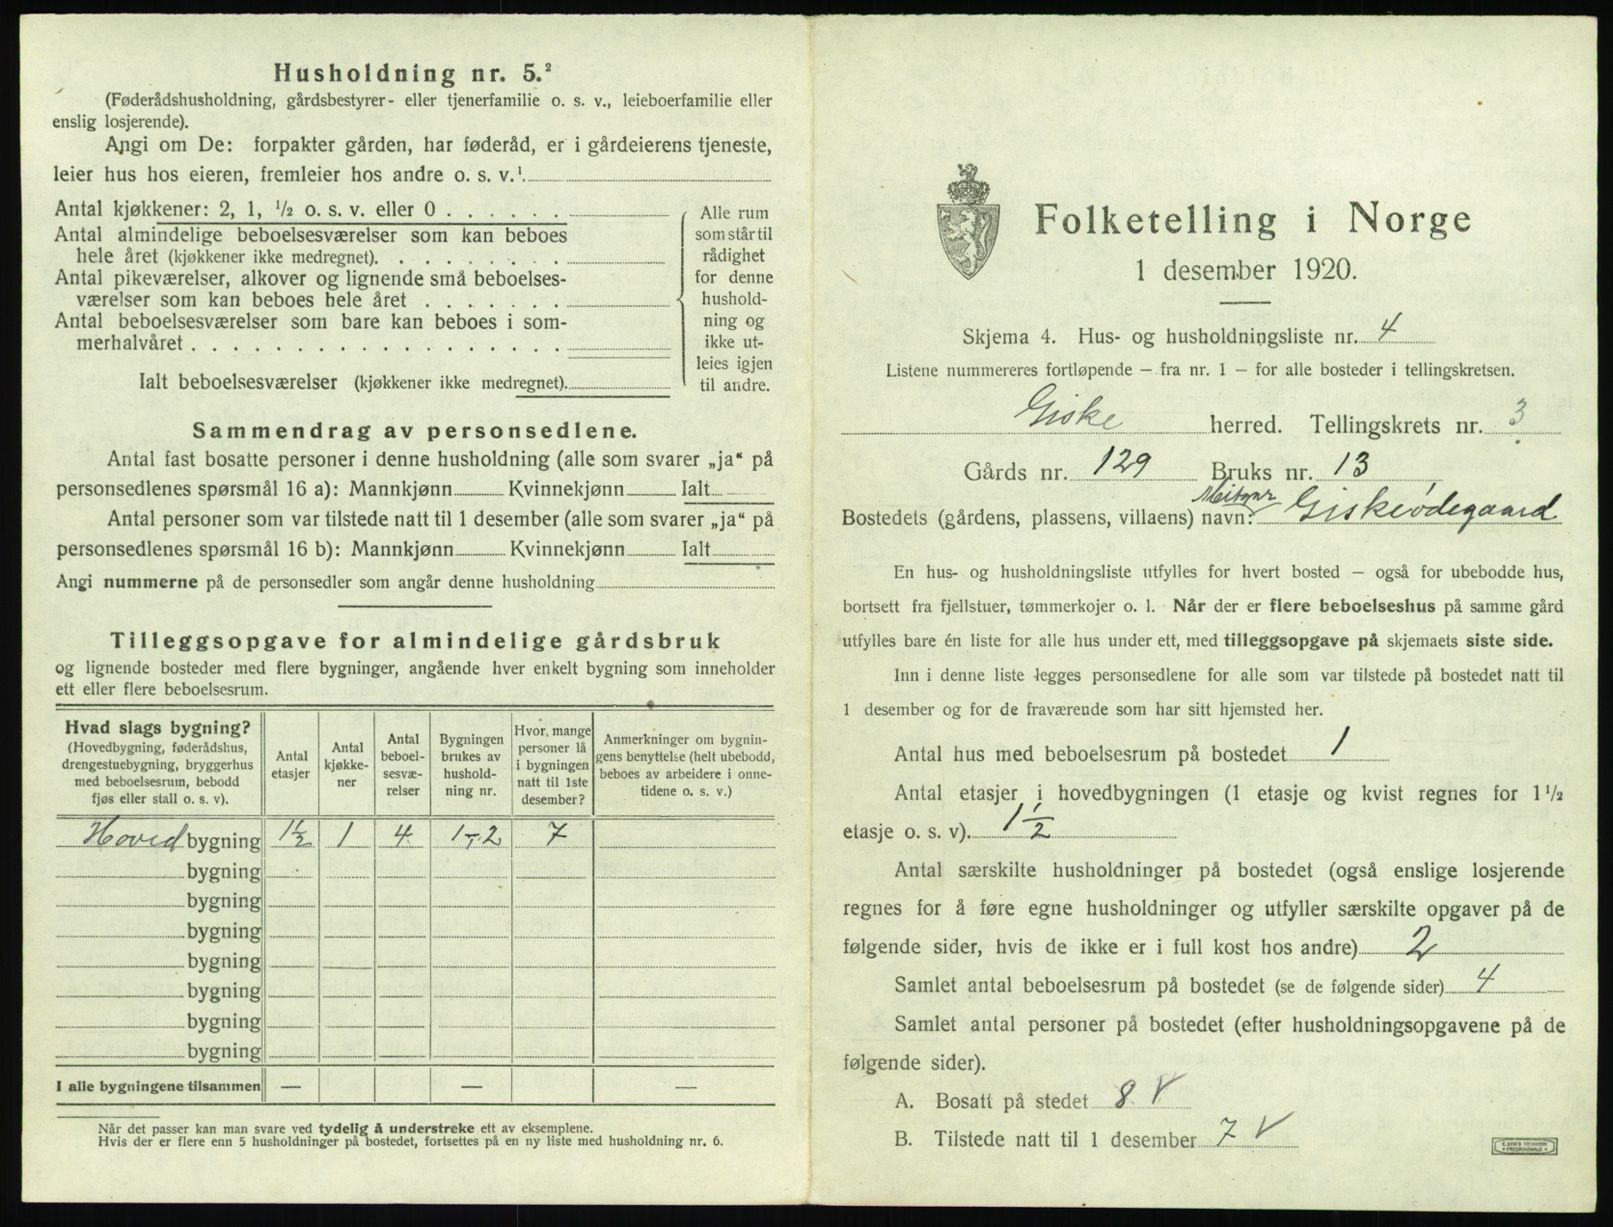 Husholdning nr. 5.²
(Føderådshusholdning, gårdsbestyrer- eller tjenerfamilie o. s. v., leieboerfamilie eller
enslig losjerende).
Angi om De: forpakter gården, har føderåd, er i gårdeierens tjeneste,
leier hus hos eieren, fremleier hos andre o. s. v.¹.
Antal kjøkkener: 2, 1, ½ o. s. v. eller 0 . . . . . .
Antal almindelige beboelsesværelser som kan beboes
hele året (kjøkkener ikke medregnet). . . . . . . . .
Antal pikeværelser, alkover og lignende små beboelses-
værelser som kan beboes hele året . . . . . . .
Antal beboelsesværelser som bare kan beboes i som-
merhalvåret . . . . . . . . . . . . . . . . . .
Ialt beboelsesværelser (kjøkkener ikke medregnet).
Alle rum
som står til
rådighet
for denne
hushold-
ning og
ikke ut-
leies igjen
til andre.
Sammendrag av personsedlene.
Antal fast bosatte personer i denne husholdning (alle som svarer „ja“ på
personsedlenes spørsmål 16 a): Mannkjønn Kvinnekjønn Ialt
Antal personer som var tilstede natt til 1 desember (alle som svarer „ja“ på
personsedlenes spørsmål 16 b): Mannkjønn Kvinnekjønn Ialt
Angi nummerne på de personsedler som angår denne husholdning
Tilleggsopgave for almindelige gårdsbruk
og lignende bosteder med flere bygninger, angående hver enkelt bygning som inneholder
ett eller flere beboelsesrum.
Hvad slags bygning?
(Hovedbygning, føderådshus,
drengestuebygning, bryggerhus
med beboelsesrum, bebodd
fjøs eller stall o. s. v).
Antal
etasjer
Antal
kjøkke-
ner
Antal
beboel-
sesvæ-
relser
Bygningen
brukes av
hushold-
ning nr.
Hvor, mange
personer lå
i bygningen
natt til 1ste
desember?
Anmerkninger om bygnin-
gens benyttelse (helt ubebodd,
beboes av arbeidere i onne-
tidene o. s. v.)
Hoved bygning 1½ 1 4 1-2 7
bygning
bygning
bygning
bygning
bygning
bygning
bygning
I alle bygningene tilsammen — — —
Når det passer kan man svare ved tydelig å understreke ett av eksemplene.
Hvis der er flere enn 5 husholdninger på bostedet, fortsettes på en ny liste med husholdning nr. 6.
Folketelling i Norge
1 desember 1920.
Skjema 4. Hus- og husholdningsliste nr. 4
Listene nummereres fortløpende – fra nr. 1 – for alle bosteder i tellingskretsen.
Giske herred. Tellingskrets nr. 3
Gårds nr. 129 Bruks nr. 13
Bostedets (gårdens, plassens, villaens) navn: Giskeødegaard
En hus- og husholdningsliste utfylles for hvert bosted – også for ubebodde hus,
bortsett fra fjellstuer, tømmerkojer o. l. Når der er flere beboelseshus på samme gård
utfylles bare én liste for alle hus under ett, med tilleggsopgave på skjemaets siste side.
Inn i denne liste legges personsedlene for alle som var tilstede på bostedet natt til
1 desember og for de fraværende som har sitt hjemsted her.
Antal hus med beboelsesrum på bostedet 1
Antal etasjer i hovedbygningen (1 etasje og kvist regnes for 1½
etasje o. s. v). 1½
Antal særskilte husholdninger på bostedet (også enslige losjerende
regnes for å føre egne husholdninger og utfyller særskilte opgaver på de
følgende sider, hvis de ikke er i full kost hos andre) 2
Samlet antal beboelsesrum på bostedet (se de følgende sider) 4
Samlet antal personer på bostedet (efter husholdningsopgavene på de
følgende sider).
A. Bosatt på stedet 8 V
B. Tilstede natt til 1 desember 7 V